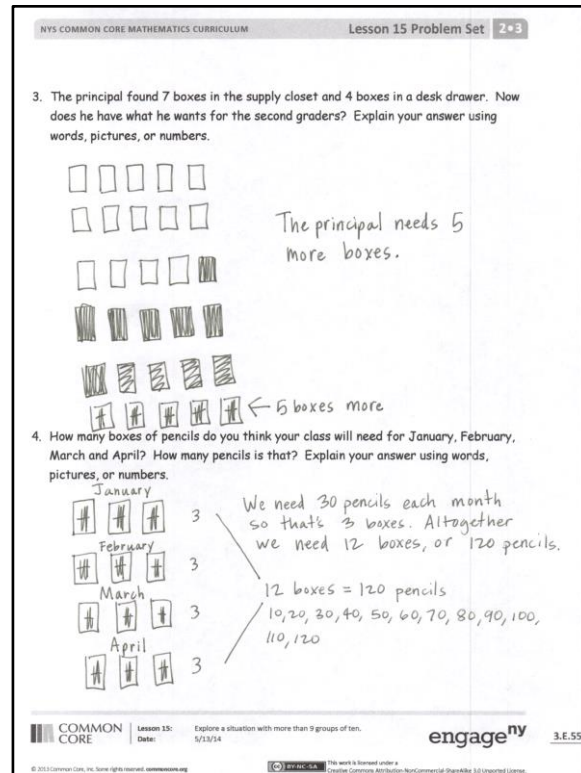 NYS COMMON CORE MATHEMATICS CURRICULUM
Lesson 15 Problem Set 2•3
3. The principal found 7 boxes in the supply closet and 4 boxes in a desk drawer. Now
does he have what he wants for the second graders? Explain your answer using
words, pictures, or numbers.
The principal needs 5
more boxes.
← 5 boxes more
4. How many boxes of pencils do you think your class will need for January, February,
March and April? How many pencils is that? Explain your answer using words,
pictures, or numbers.
January
3
February
3
March
3
April
3
We need 30 pencils each month
so that's 3 boxes. Altogether
we need 12 boxes, or 120 pencils.
12 boxes = 120 pencils
10, 20, 30, 40, 50, 60, 70, 80, 90, 100,
110, 120
COMMON
CORE
Lesson 15: Explore a situation with more than 9 groups of ten.
Date: 5/13/14
engage ny
3.E.55
© 2013 Common Core, Inc. Some rights reserved. commoncore.org
(cc) BY-NC-SA
This work is licensed under a
Creative Commons Attribution-NonCommercial-ShareAlike 3.0 Unported License.